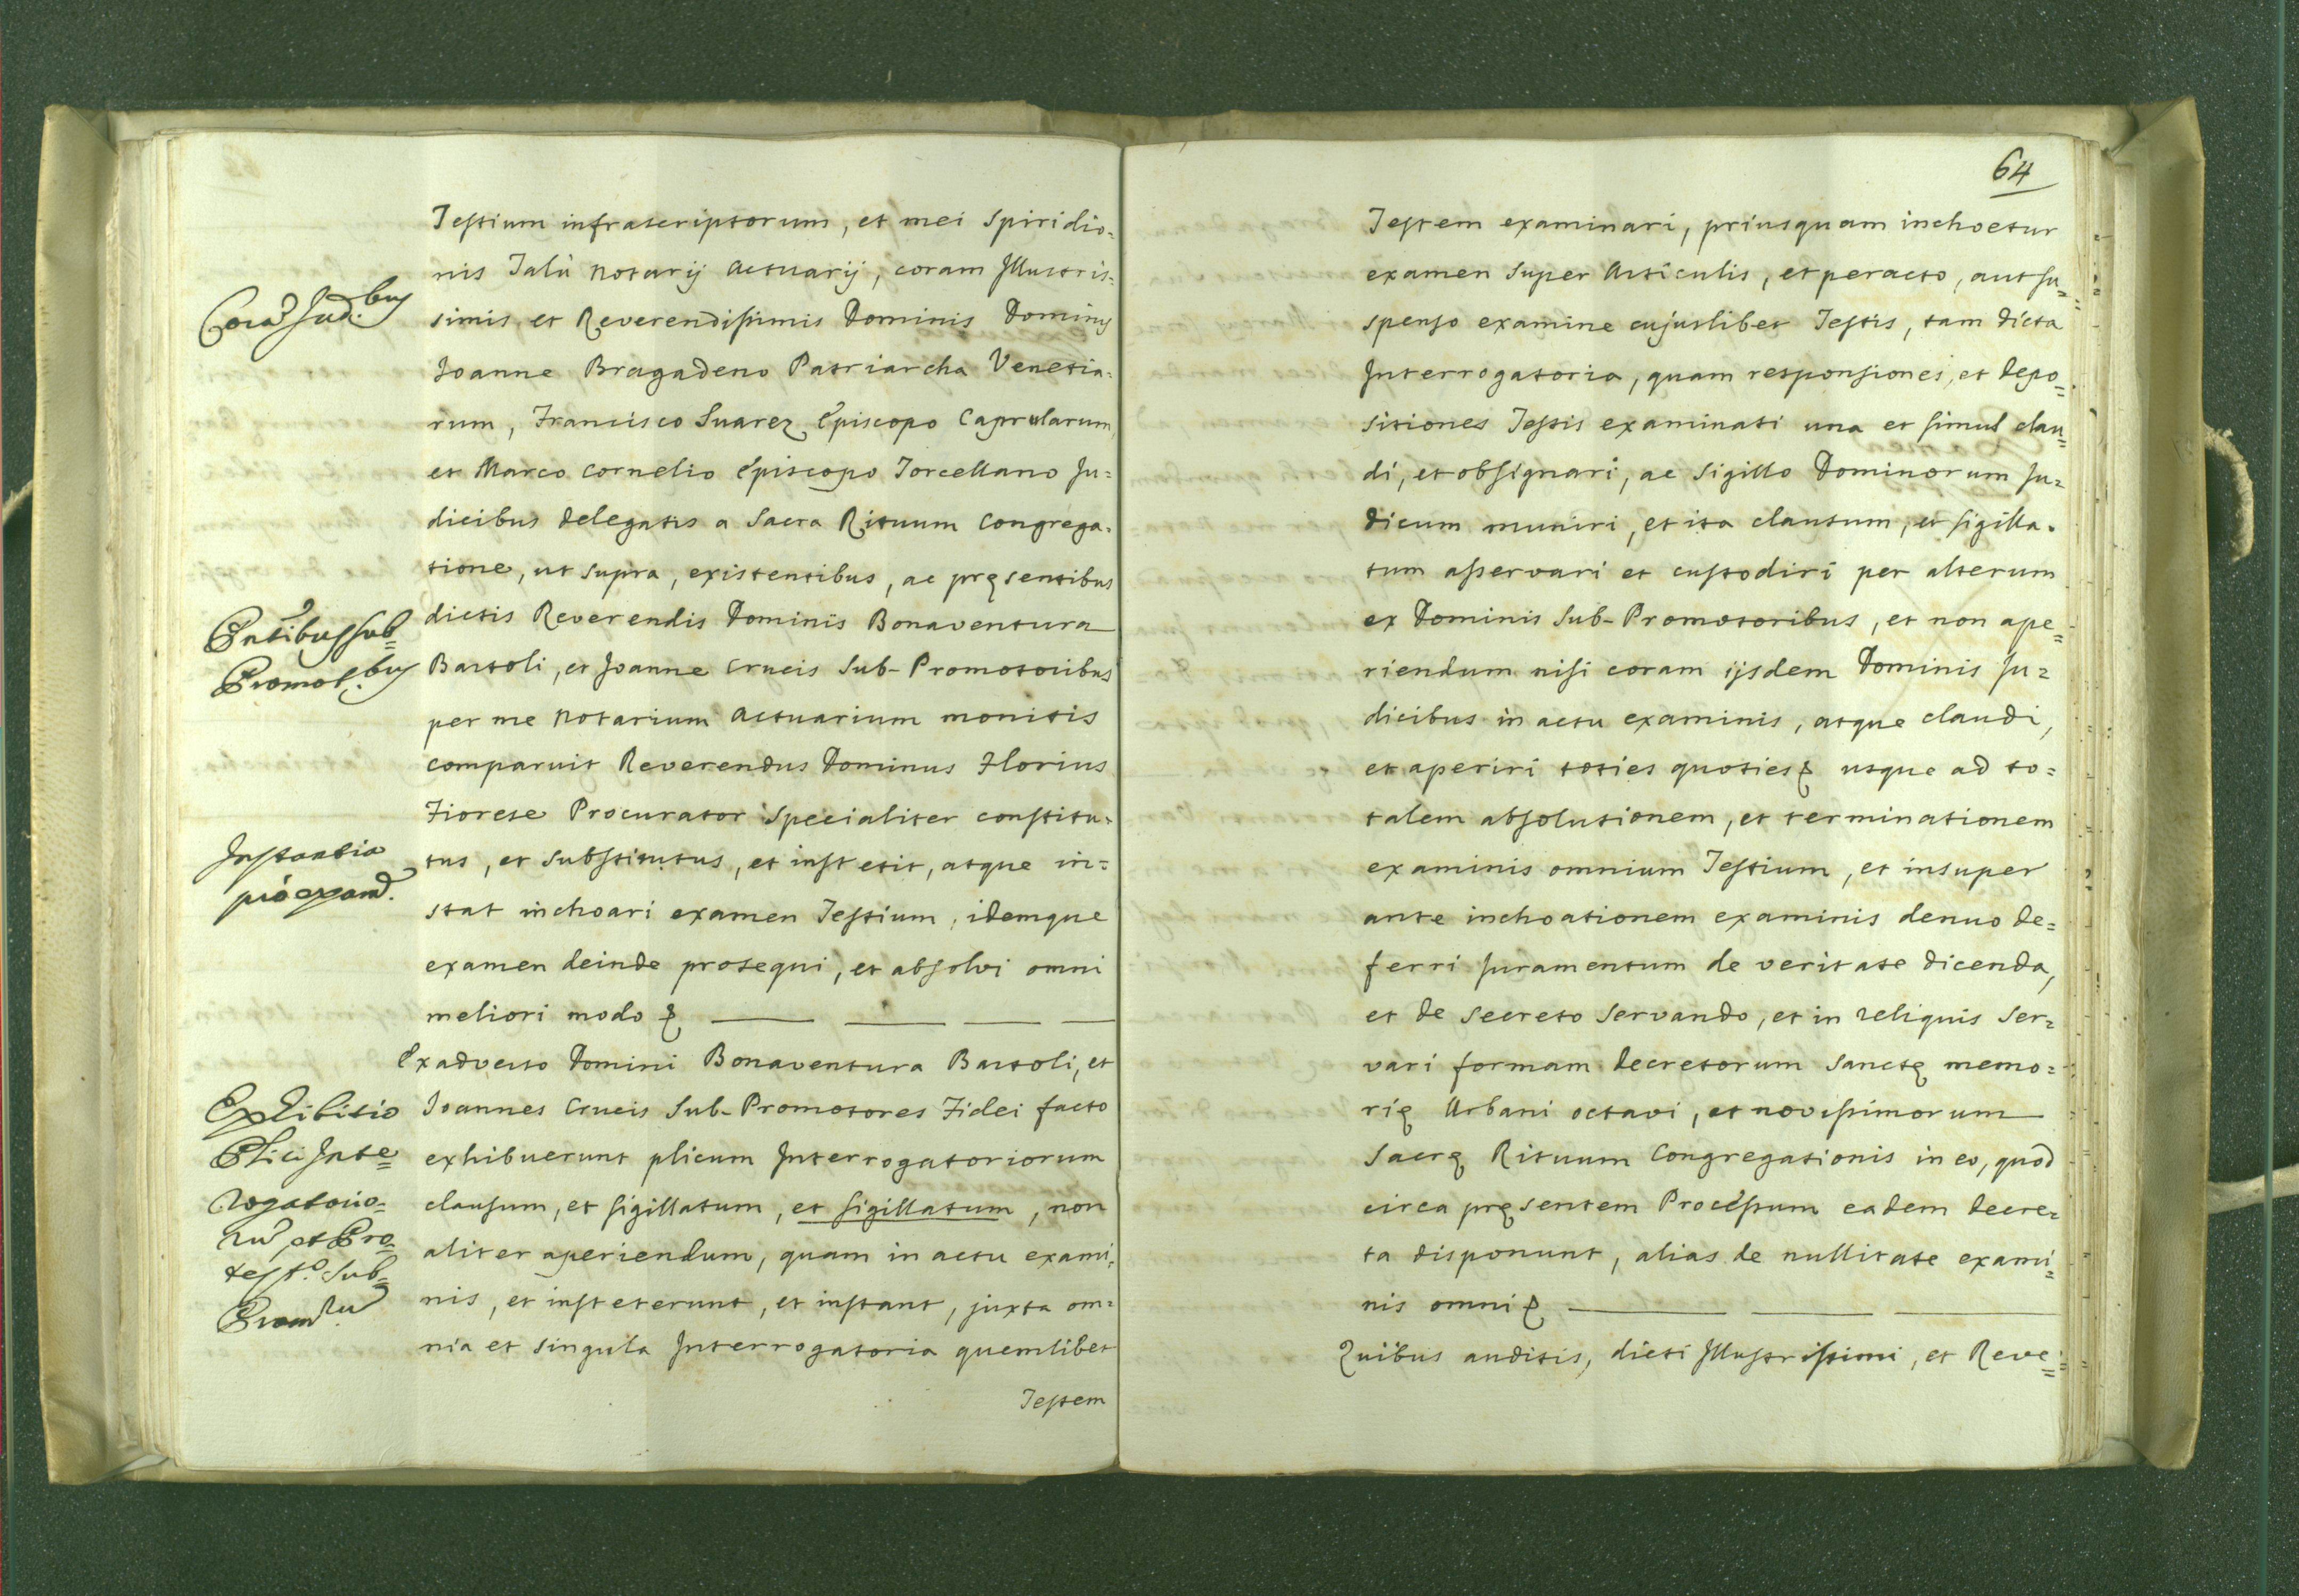 Testium infrascriptorum, et mei Spiridio=
nis Talù Notarij Actuarij, coram Illustris=
simis et Reverendissimis Dominis Dominis
Joanne Bragadeno Patriarcha Venetia=
rum, Francisco Suarez Episcopo Caprularum
et Marco Cornelio Episcopo Torcellano Ju=
dicibus delegatis a Sacra Rituum Congrega=
tione, ut supra, existentibus, ac pręsentibus
dictis Reverendis Dominis Bonaventura
Bartoli, et Joanne Crucis Sub-Promotoribus
per me Notarium Actuarium monitis
comparuit Reverendus Dominus Florius
Fiorese Procurator specialiter constitu=
tus, et substitutus, et institit, atque in=
stat inchoari examen Testium, idemque
examen deinde prosequi, et absolvi omni
meliori modo &
Exadverso Domini Bonaventura Bartoli, et
Joannes Crucis Sub-Promotores Fidei facto
exhibuerunt plicum Interrogatoriorum
clausum, et sigillatum, et sigillatum, non
aliter aperiendum, quam in actu exami=
nis, et insteterunt, et instant, juxta om=
nia et singula Interrogatoria quemlibet
Testem
Corã Jud.bus
Pñtibus sub=
Promot.bus
Instantia
pro exam.
Exhibitio
Plici Inte=
rogatorio=
rũ, et Pro=
test.o Sub=
64
Testem examinari, priusquam inchoetur
examen super Articulis, et peracto, aut su=
spenso examine cujuslibet Testis, tam dicta
Interrogatoria, quam responsiones, et depo=
sitiones Testis examinati una et simul clau=
di, et obsignari, ac sigillo Dominorum Ju=
dicum muniri, et ita clausum, et sigilla=
tum asservari et custodiri per alterum
ex Dominis Sub-Promotoribus, et non ape=
riendum nisi coram ijsdem Dominis Ju=
dicibus in actu examinis, atque claudi,
et aperiri toties quoties & usque ad to=
talem absolutionem, et terminationem
examinis omnium Testium, et insuper
ante inchoationem examinis denuo de=
ferri juramentum de veritate dicenda,
et de secreto servando, et in reliquis ser=
vari formam decretorum sanctę memo=
rię Urbani octavi, et novissimorum
Sacrę Rituum Congregationis in eo, quod
circa pręsentem Processum eadem decre=
ta disponunt, alias de nullitate exami=
nis omni &
Quibus auditis, dicti Illustrissimi, et Reve=